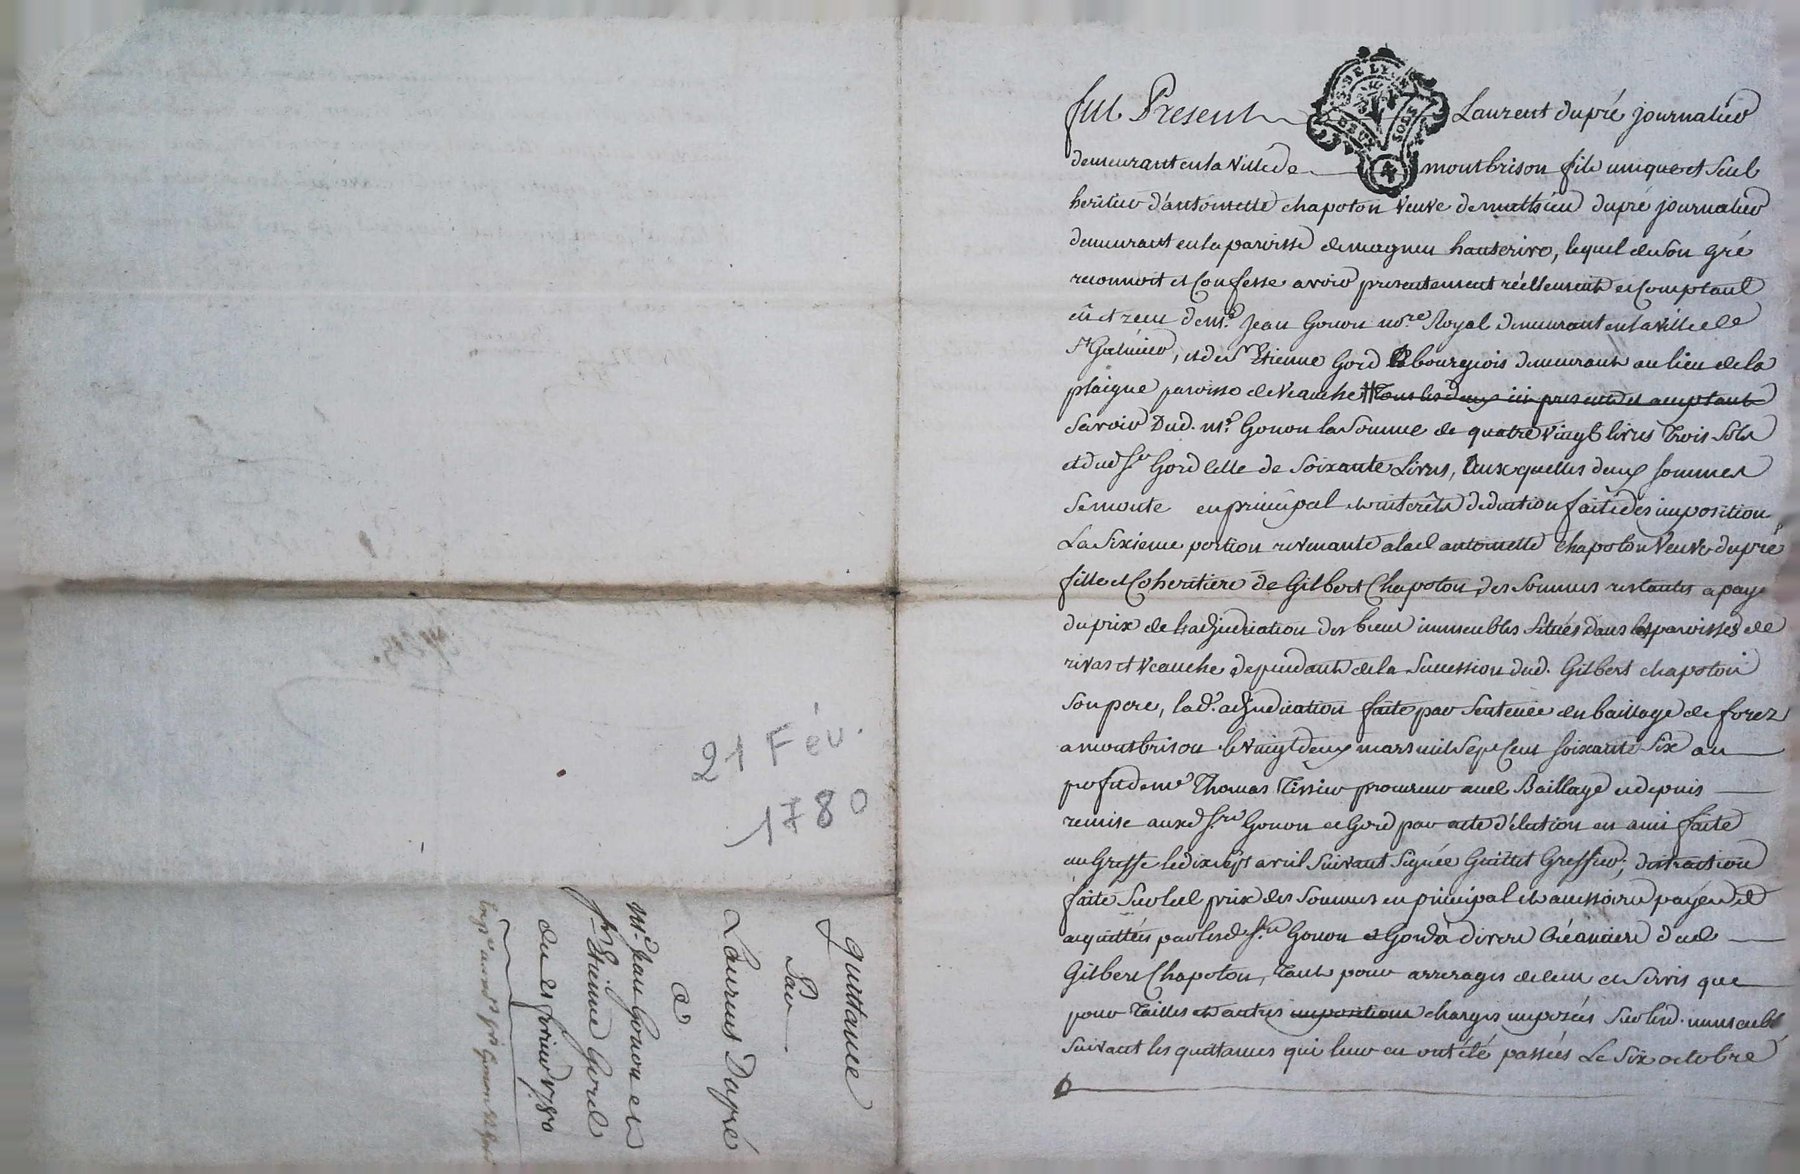 fut Present Laurent dupré journalier
demeurant en la ville de montbrison fils unique et seul
heritier d'antoinette chapoton veuve de mathieu dupré journalier
demeurant en la paroisse de magneu hauterive, lequel de son gré
reconnoit et Confesse avoir presentement réellement et Comptant
eû et recu de mr. Jean Gonon nore. Royal demeurant en la ville de
st Galmier, et de sr Etienne Gord bourgeois demeurant au lieu de la
plaigne paroisse de veauche # tous les deux ici presents et acceptants
Savoir Dud. mr. Gonon la Somme de quatre vingt livres trois Sols
et dud sr Gord celle de Soixante Livres, auxquelles deux sommes
Se monte en principal et interêts déduction faite des imposition
La Sixieme portion revenante a lad antoinette chapoton veuve dupré
fille et Coheritiere de Gilbert Chapoton, des Sommes restantes a paye
du prix de l'adjudication des biens immeubles Situés dans les paroisses de
rivas et veauche dependants de la Succession dud. Gilbert chapoton
Son pere, lad. adjudication faite par Sentence du bailliage de forez
a montbrison le vingt deux mars mil Sept Cent soixante Six au
profit de me Thomas Tissier procureur aud Bailliage et depuis
remise auxd srs Gonon et Gord par acte d'élection en ami faite
au Greffe le dix sept avril Suivant Signée Guillet Greffier, distraction
faite Sur led prix des Sommes en principal et accessoires payées et
acquittées par lesd srs Gonon et Gord à divers Créanciers dud
Gilbert Chapoton, tant pour arrerages de cens et Servis que
pour Tailles et autres impositions charges imposées Sur lesd. immeubles
Suivant les quittances qui leur en ont été passées Le Six octobre
21 Fév.
1780
quittance
Par
Laurent Dupré
a
mr. Jean Gonon et
sr Etienne Gord
du 21 fevrier 1780